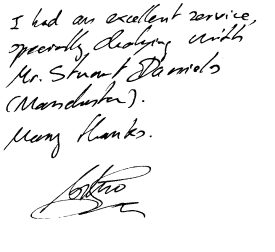 I had an excellent service,
specially dealing with
Mr. Stuart Daniels
(Manchester).
Many thanks.